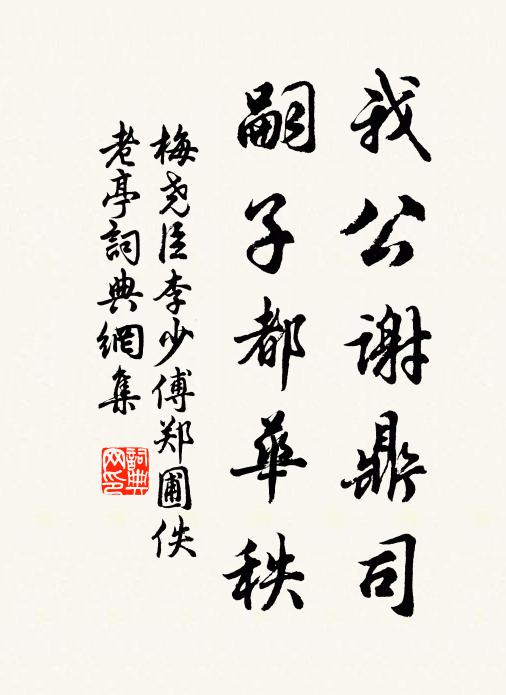 我公谢鼎司
嗣子都华秩
梅尧臣李少傅郑圃佚
老亭詞典網集
詞典网印